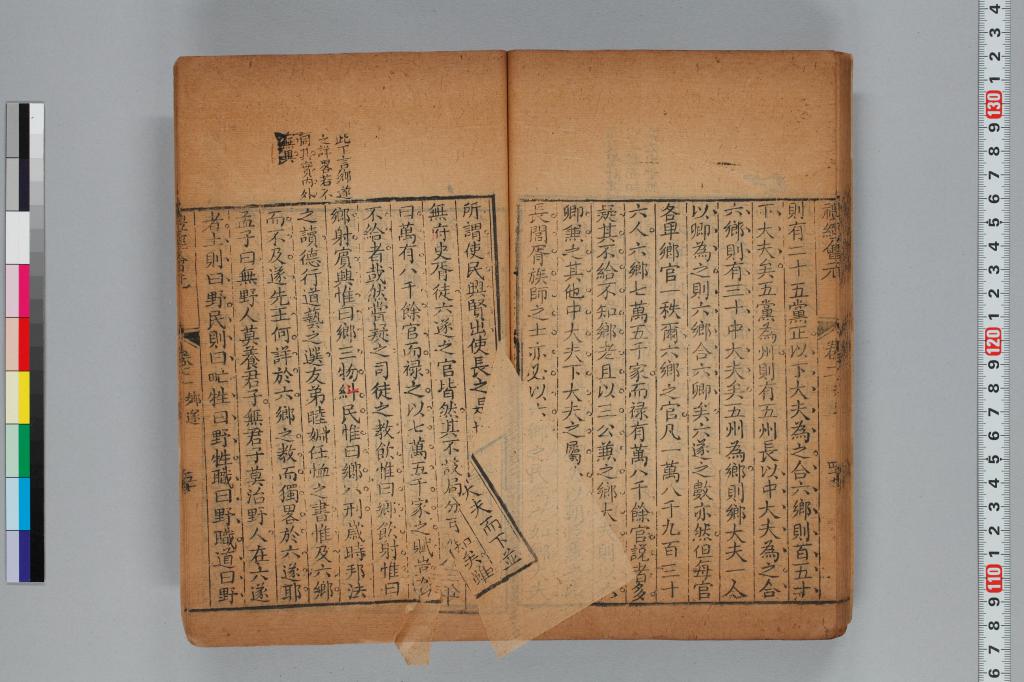 禮經會元
卷二
則有二十五黨正以下大夫為之合六鄉則百五十
下大夫矣五黨為州則有五州長以中大夫為之合
六鄉則有三十中大夫矣五州為鄉則鄉大夫一人
以卿為之則六鄉合六卿矣六遂之數亦然但每官
各卑鄉官一秩爾六鄉之官凡一萬八千九百三十
六人六鄉七萬五千家而祿有萬八千餘官說者多
疑其不給不知鄉老且以三公兼之鄉大
卿兼之其他中大夫下大夫之屬
長閭胥族師之士亦又以
大夫而下並
矣雖
此下言鄉遂
之詳畧若不
同其實內外
所謂使民興賢出使長之
無府史胥徒六遂之官皆然其不設局分
曰萬有八千餘官而祿之以七萬五千家之賦
不給者哉然嘗疑之司徒之教飲惟曰鄉飲射惟曰
鄉射賓興惟曰鄉三物糾民惟曰鄉八刑歲時邦法
之讀德行道藝之選友弟睦婣任恤之書惟及六鄉
而不及遂先王何詳於六鄉之教而獨畧於六遂耶
孟子曰無野人莫養君子無君子莫治野人在六遂
者土則曰野民則曰甿牲曰野牲職曰野職道曰野
禮經會元
卷二
鄉遂